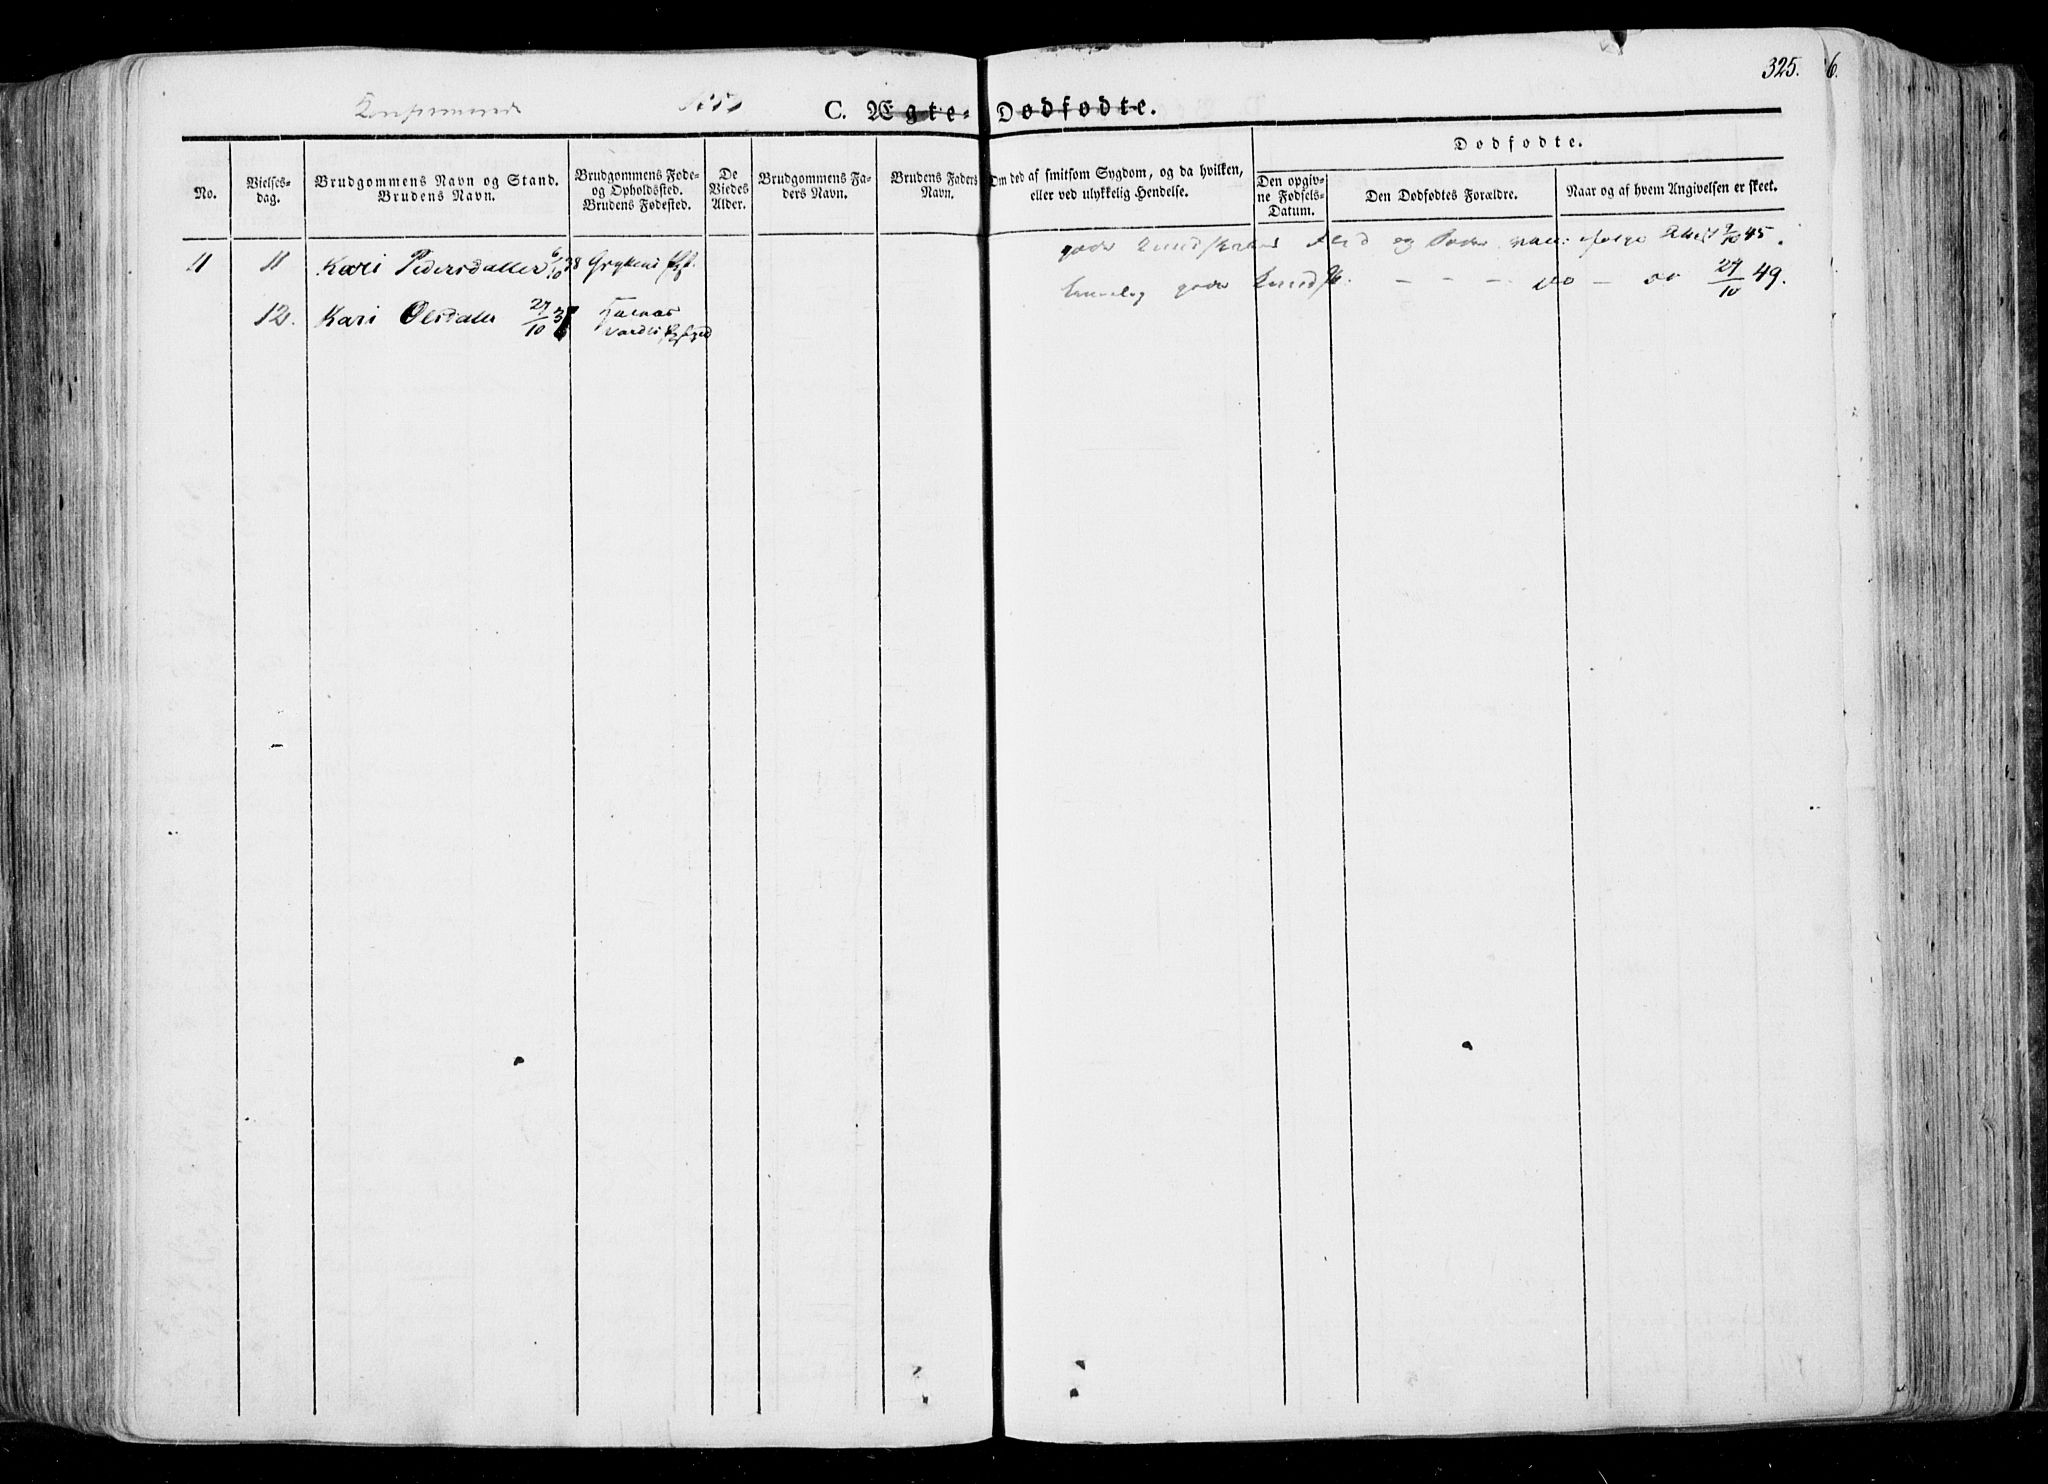 325. 6.
C. Ægte- Dødfødte.
Dødfødte.
No.
Vielses-
dag.
Brudgommens Navn og Stand.
Brudens Navn.
Brudgommens Føde-
og Opholdssted.
Brudens Fødested.
De
Viedes
Alder.
Brudgommens Fa-
ders Navn.
Brudens Faders
Navn.
Om død af smitsom Sygdom, og da hvilken,
eller ved ulykkelig Hendelse.
Den opgiv-
ne Fødsels-
Datum.
Den Dødfødtes Forældre.
Naar og af hvem Angivelsen er skeet.
11 11 Kari Pedersdatter 6/10 38
goder Kundskaber og 45.
12. Kari Olsdatter 27/10
goder - - - do - do 27/10 49.